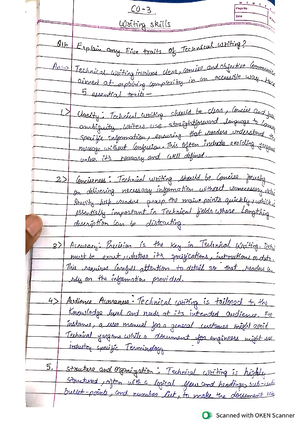 CO-3
Writing skills
Q1. Explain any Five traits of Technical Writing?
Ans Technical Writing involve clear, Concise and objective Communication
aimed at explaining complexity in an accessible way.
5 essential traits -
1) Clarity: Technical writing should be clear, Concise and
ambiguity, writers use straightforward language to
specific information, ensuring that readers understand
message without confusion. This often include avoiding jargon
unless its necessary and well defined.
2) Conciseness: Technical writing should be Concise,
on delivering necessary information without unnecessary
Brevity help readers grasp the main points quickly, which
essentially important in Technical fields where Lengthy
description can be distracting.
3) Accuracy: Precision is the key in Technical Writing.
must be exact, whether its specifications, instructions or data.
This requires careful attention to detail so that readers
rely on the information provided.
4) Audience Awareness: Technical writing is tailored to the
Knowledge level and needs of its intended audience. For
instance, a user manual for a general customer might avoid
Technical jargons while a document for engineers might use
industry specific Terminology
5. Structure and Organization: Technical writing is highly
structured, often with a logical flow and headings,
bullet-points, and number list, to make the document
Scanned with OKEN Scanner